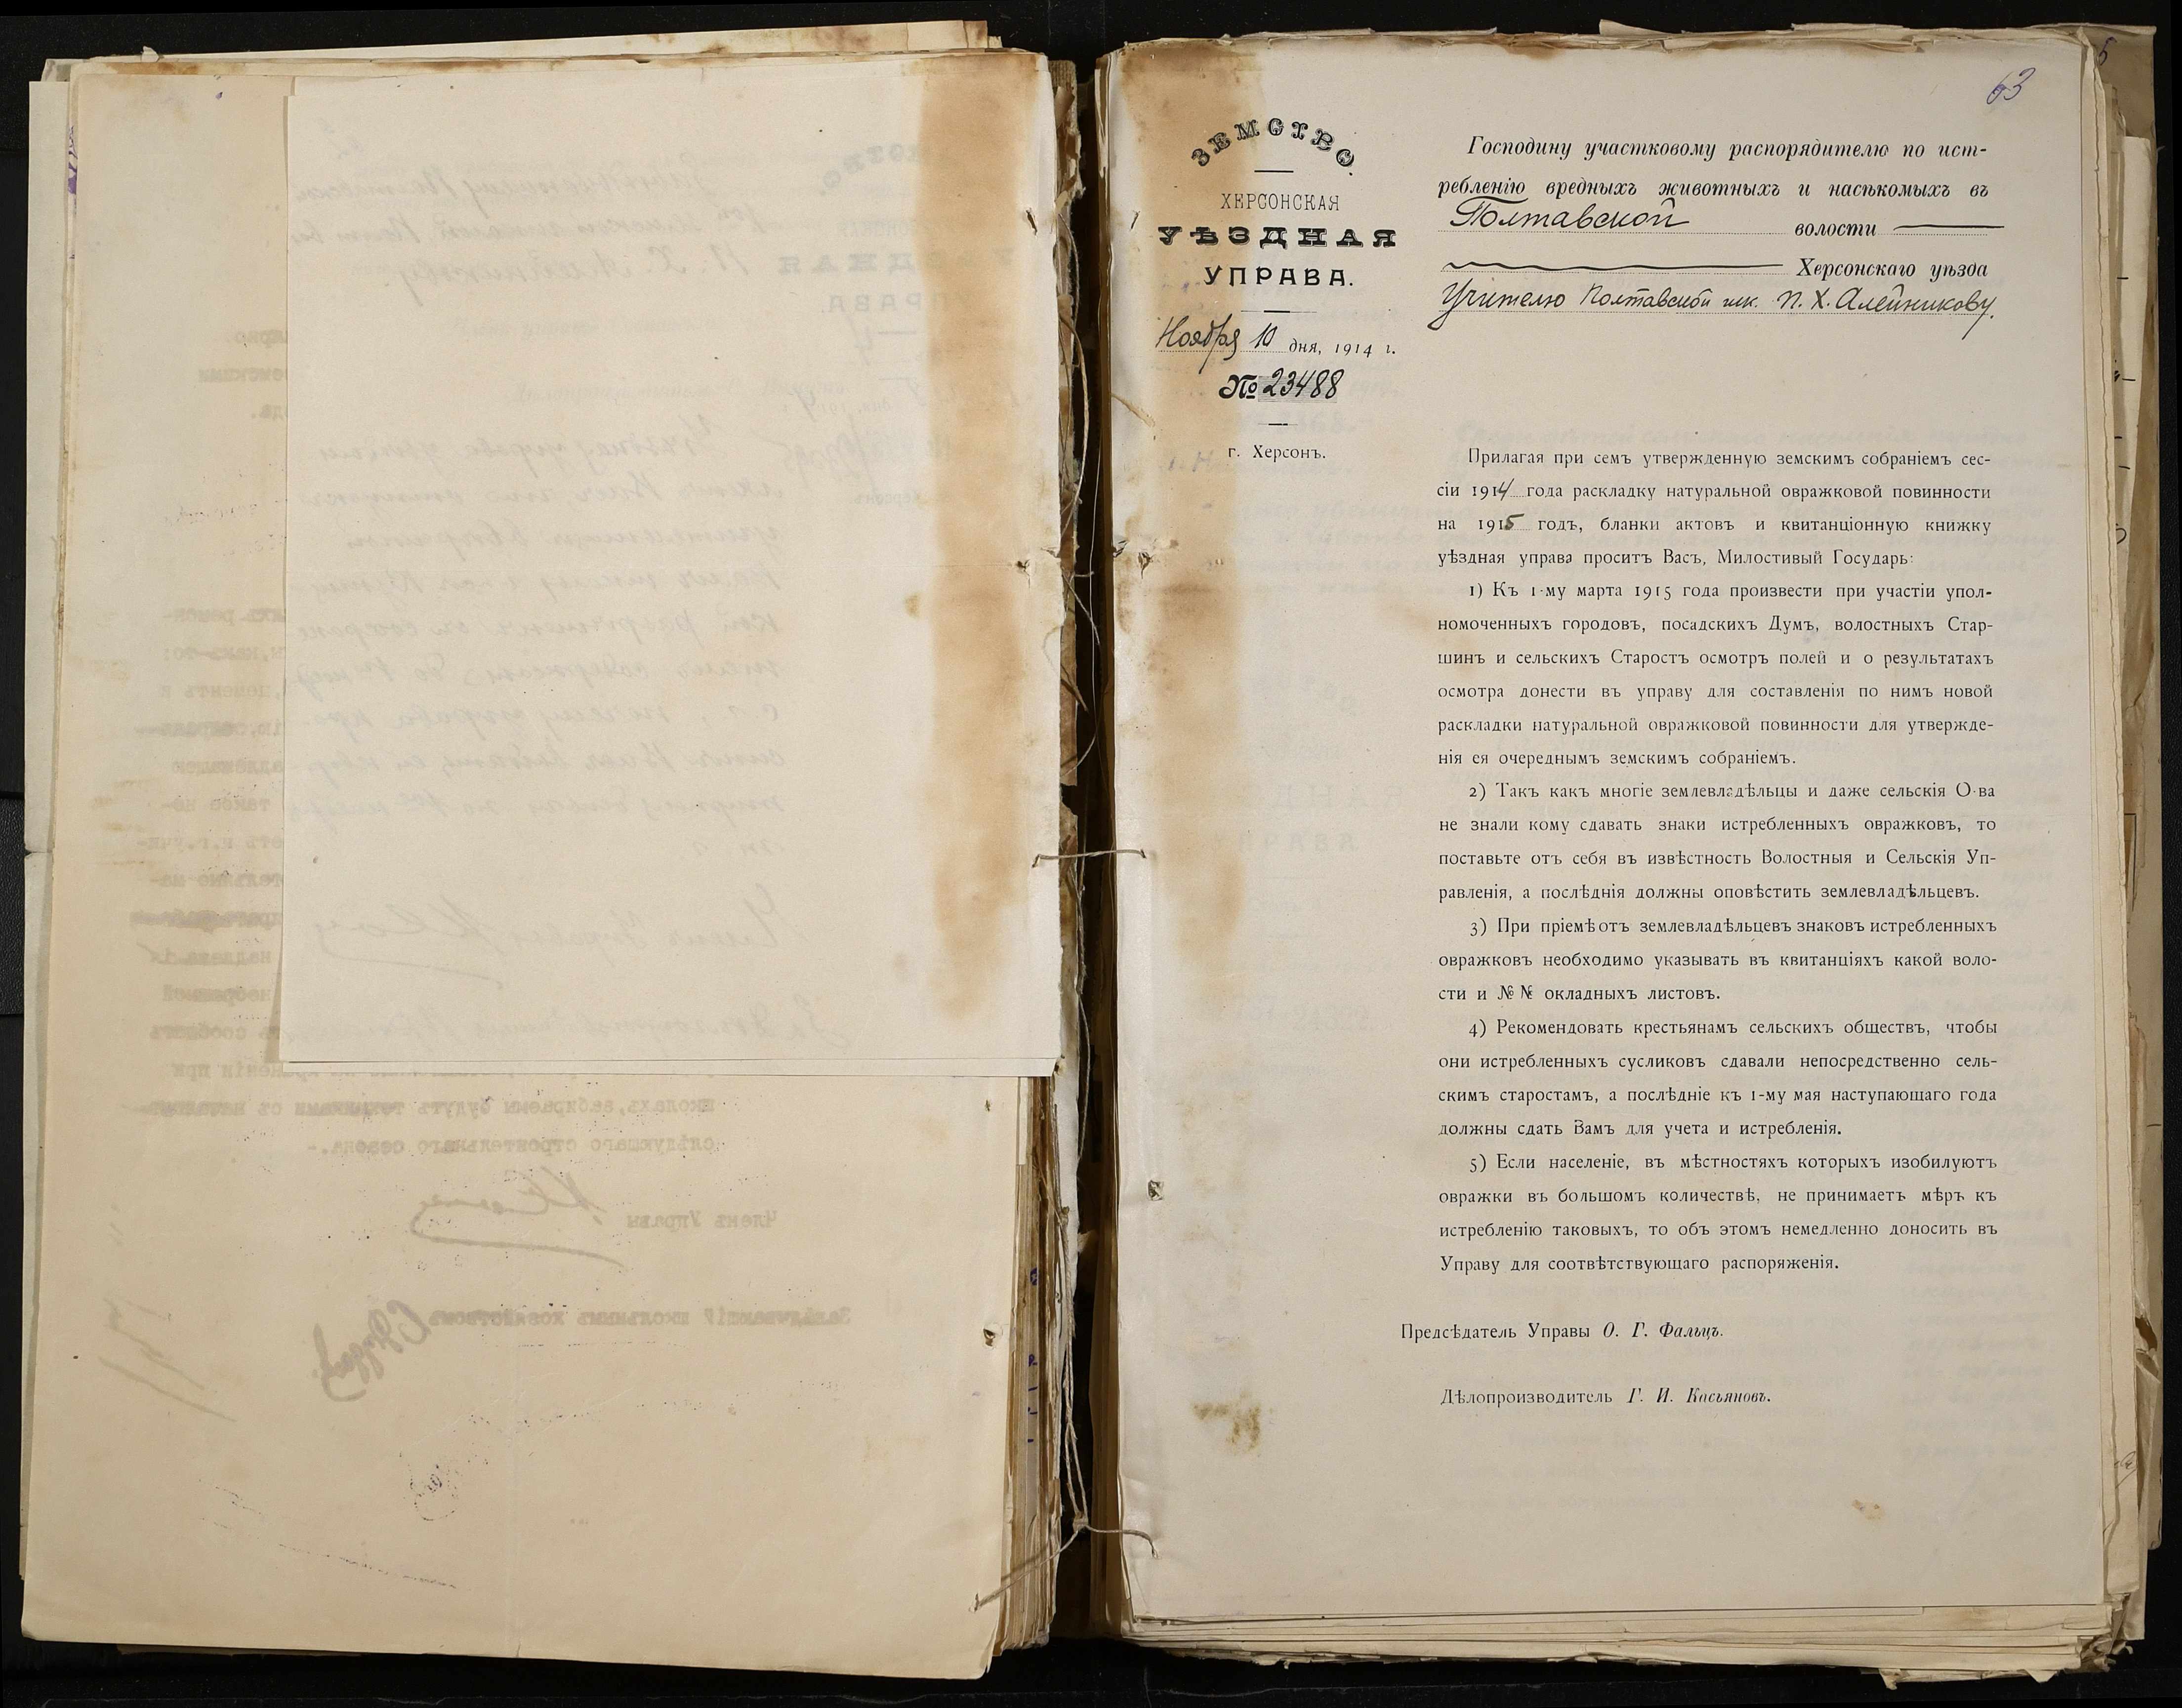 63
ЗЕМСТВО.
ХЕРСОНСКАЯ
УѢЗДНАЯ
УПРАВА.
Ноября 10 дня, 1914 г.
№ 23488
г. Херсонъ.
Господину участковому распорядителю по ист-
ребленію вредныхъ животныхъ и насѣкомыхъ въ
Полтавской волости
Херсонскаго уѣзда
Учителю Полтавской шк. П. Х. Алейникову.
Прилагая при семъ утвержденную земскимъ собраніемъ сес-
сіи 1914 года раскладку натуральной овражковой повинности
на 1915 годъ, бланки актовъ и квитанціонную книжку
уѣздная управа проситъ Васъ, Милостивый Государь:
1) Къ 1-му марта 1915 года произвести при участіи упол-
номоченныхъ городовъ, посадскихъ Думъ, волостныхъ Стар-
шинъ и сельскихъ Старостъ осмотръ полей и о результатахъ
осмотра донести въ управу для составленія по нимъ новой
раскладки натуральной овражковой повинности для утвержде-
нія ея очереднымъ земскимъ собраніемъ.
2) Такъ какъ многіе землевладѣльцы и даже сельскія О-ва
не знали кому сдавать знаки истребленныхъ овражковъ, то
поставьте отъ себя въ извѣстность Волостныя и Сельскія Уп-
равленія, а послѣднія должны оповѣстить землевладѣльцевъ.
3) При пріемѣ отъ землевладѣльцевъ знаковъ истребленныхъ
овражковъ необходимо указывать въ квитанціяхъ какой воло-
сти и №№ окладныхъ листовъ.
4) Рекомендовать крестьянамъ сельскихъ обществъ, чтобы
они истребленныхъ сусликовъ сдавали непосредственно сель-
скимъ старостамъ, а послѣдніе къ 1-му мая наступающаго года
должны сдать Вамъ для учета и истребленія.
5) Если населеніе, въ мѣстностяхъ которыхъ изобилуютъ
овражки въ большомъ количествѣ, не принимаетъ мѣръ къ
истребленію таковыхъ, то объ этомъ немедленно доносить въ
Управу для соотвѣтствующаго распоряженія.
Предсѣдатель Управы О. Г. Фальцъ.
Дѣлопроизводитель Г. И. Касьяновъ.